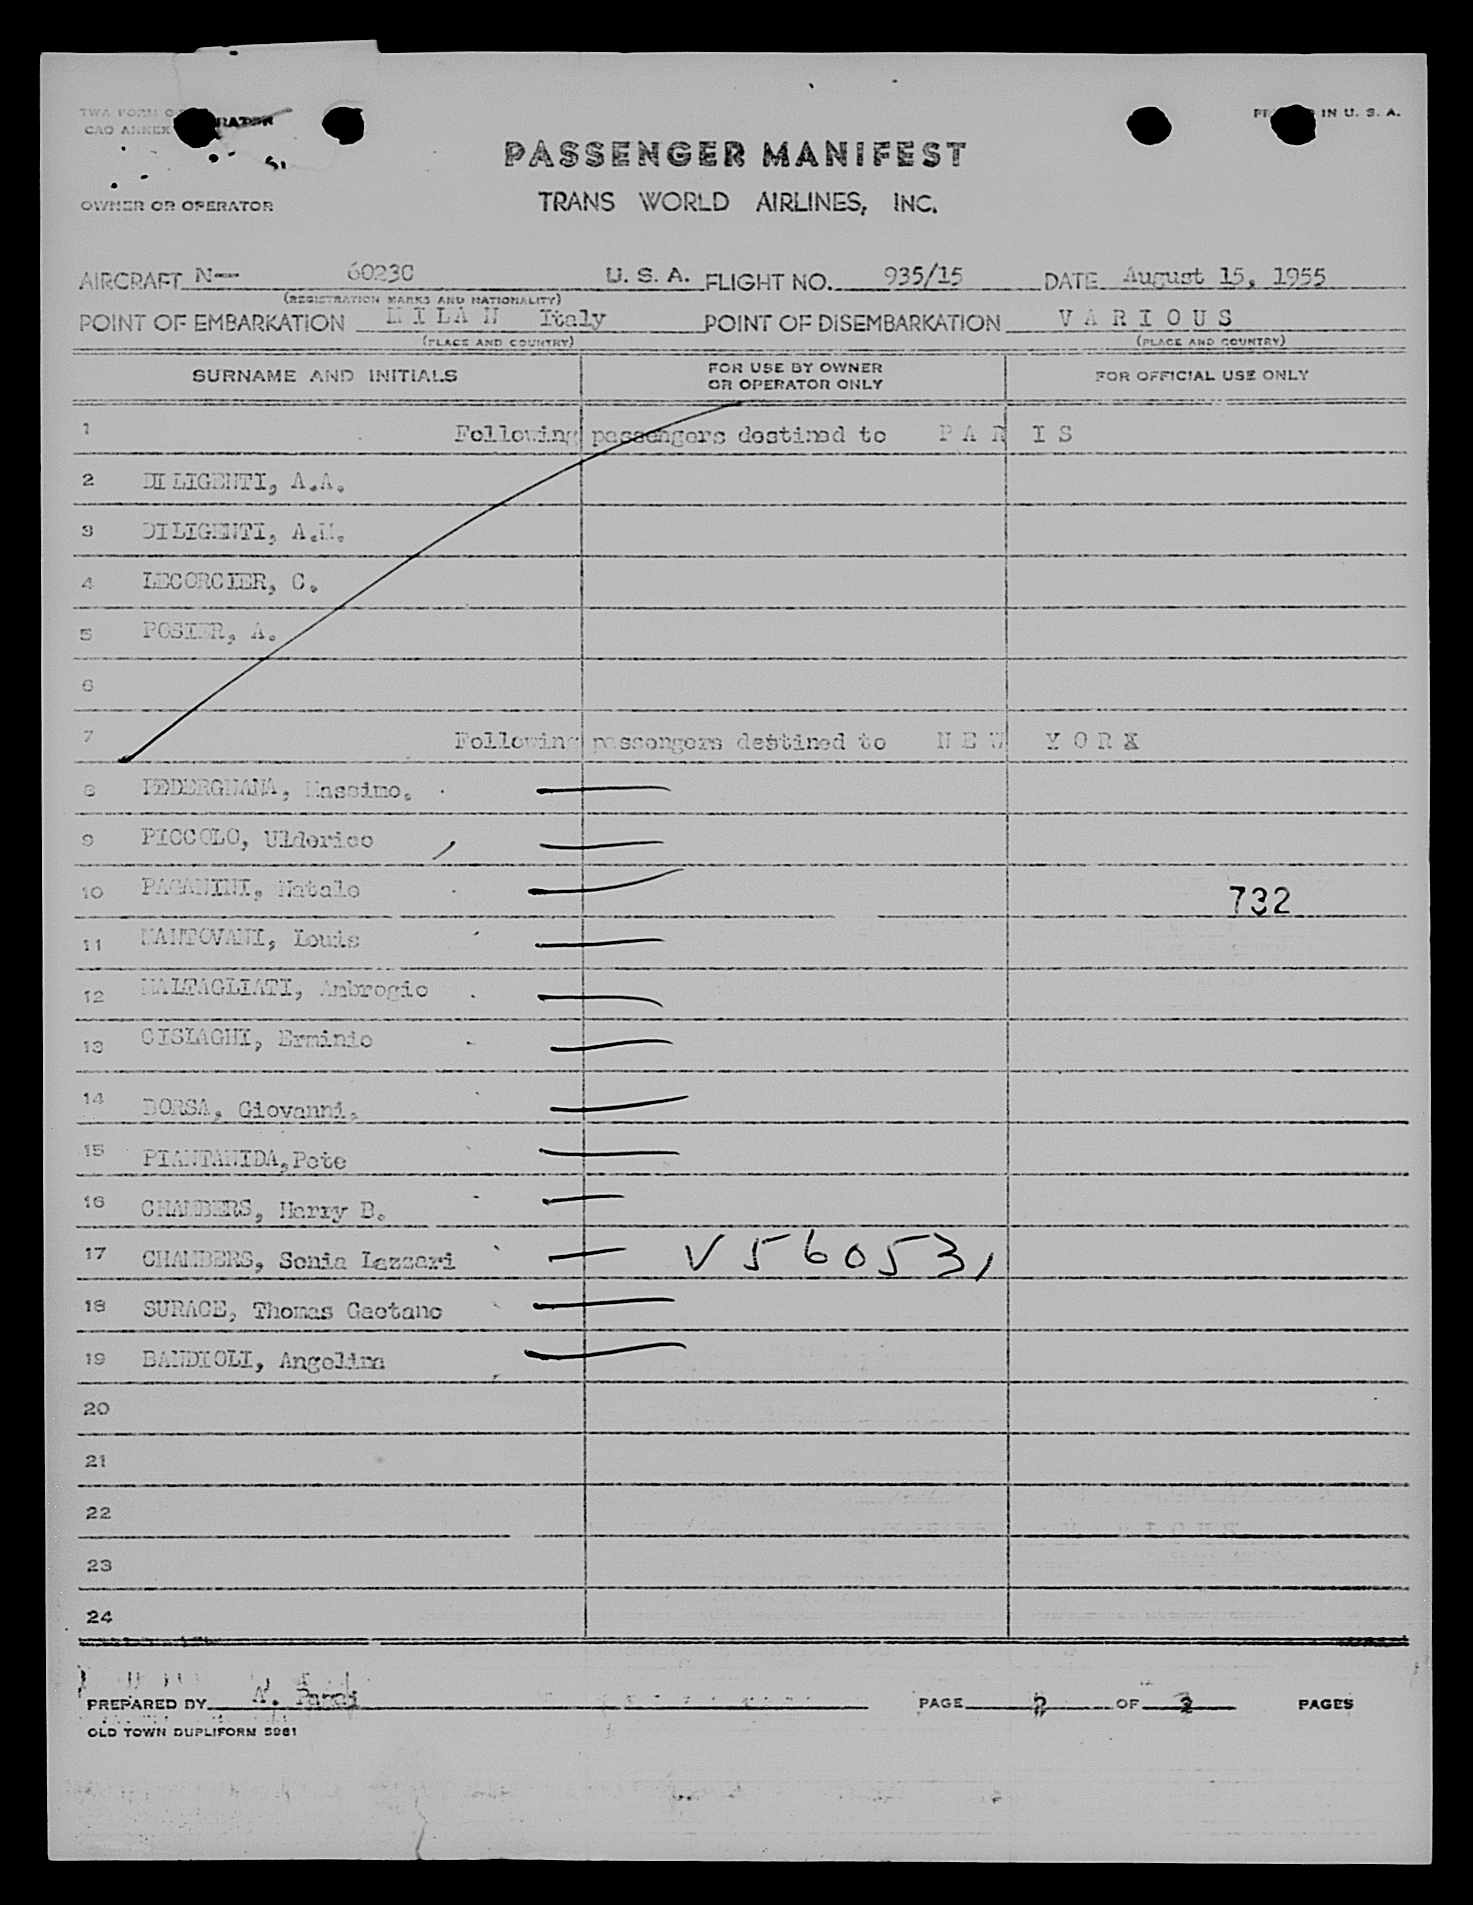 TWA FORM
CAO ANNEX
PASSENGER MANIFEST
IN U. S. A.
TRANS WORLD AIRLINES, INC.
OWNER OR OPERATOR
AIRCRAFT N-- 6023C U. S. A. FLIGHT NO. 935/15 DATE August 15, 1955
(REGISTRATION MARKS AND NATIONALITY)
POINT OF EMBARKATION M I L A N Italy POINT OF DISEMBARKATION V A R I O U S
(PLACE AND COUNTRY) (PLACE AND COUNTRY)
SURNAME AND INITIALS FOR USE BY OWNER OR OPERATOR ONLY FOR OFFICIAL USE ONLY
1 Following passengers destined to P A R I S
2 DILIGENTI, A.A.
3 DILIGENTI, A.M.
4 LECORCIER, C.
5 POSIER, A.
6
7 Following passengers destined to N E W Y O R K
8 FEDERGNANA, Massimo.
9 PICCOLO, Ulderico
10 PAGANINI, Natale 732
11 MANTOVANI, Louis
12 MALTAGLIATI, Ambrogio
13 CISLAGHI, Erminio
14 BORSA, Giovanni.
15 PIANTANIDA,Pete
16 CHAMBERS, Harry B.
17 CHAMBERS, Sonia Lazzari V560531
18 SURACE, Thomas Gaetano
19 BANDIOLI, Angelina
20
21
22
23
24
PREPARED BY PAGE 2 OF 2 PAGES
OLD TOWN DUPLIFORM 5961